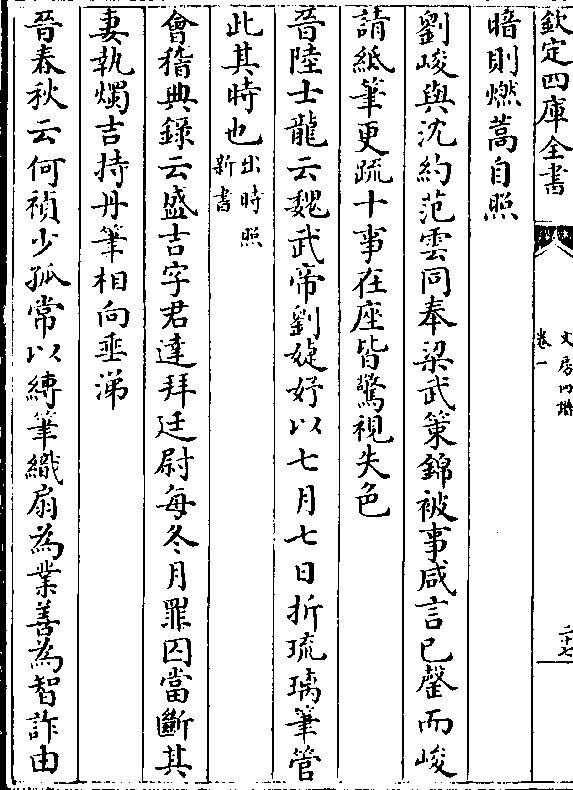 欽定四庫全書
文房四譜
卷一
二十七
暗則燃蒿自照
劉峻與沈約范雲同奉梁武策錦被事咸言已罄而峻
請紙筆更疏十事在座皆驚視失色
晉陸士龍云魏武帝劉婕妤以七月七日折琉璃筆管
此其時也出時照新書
會稽典錄云盛吉字君達拜廷尉每冬月罪囚當斷其
妻執燭吉持丹筆相向垂涕
晉春秋云何禎少孤常以縛筆織扇為業善為智詐由